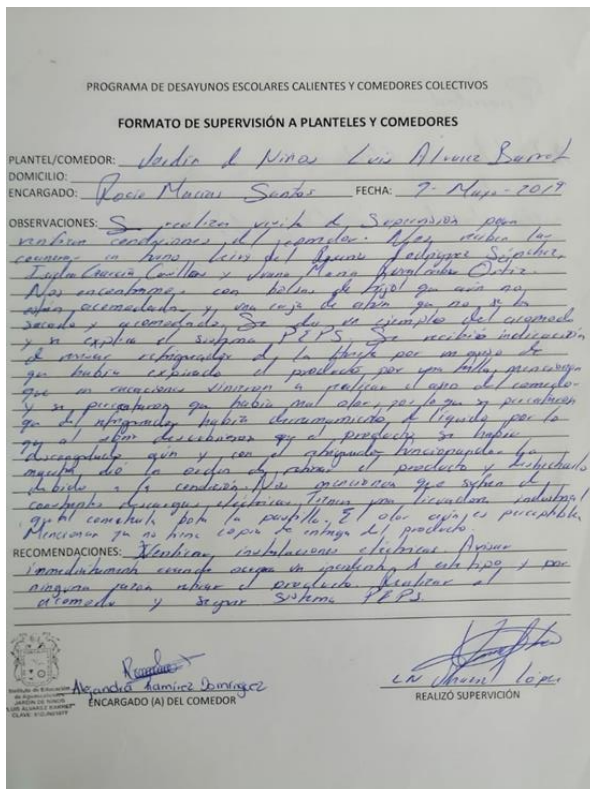 PROGRAMA DE DESAYUNOS ESCOLARES CALIENTES Y COMEDORES COLECTIVOS
FORMATO DE SUPERVISIÓN A PLANTELES Y COMEDORES
PLANTEL/COMEDOR: Jardín d Niños Luis Alvarez Barret
DOMICILIO:
ENCARGADO: Rocío Macías Santos FECHA: 7-Mayo-2019
OBSERVACIONES: Se realiza visita de Supervisión para
verificar condiciones del comedor. Nos reciben las
Rodríguez Sánchez,
García Casillas y Juana María Ortiz.
Nos encontramos con bolsas de frijol que aún no
están acomodadas y una caja de atún que no se ha
sacado y acomodado. Se da un ejemplo del acomodo
y se explica el sistema PEPS. Se recibió indicación
d revisar refrigerador d la por
que había expirado el producto por una falla, mencionan
que en vacaciones vinieron a realizar el aseo del comedor
y se percataron que había mal olor, por lo que se percataron
que del refrigerador había derramamiento de líquido por lo
que al abrir descubrieron que el producto se había
descongelado aún y con el refrigerador funcionando. La
maestra dio la orden de retirar el producto y desecharlo
debido a la condición. Nos mencionan que sufren de
constantes descargas eléctricas. Tienen una licuadora industrial
que al conectarla bota la pastilla. El olor aún es perceptible.
Mencionan que no tiene copia de entrega del producto.
RECOMENDACIONES: Verificar instalaciones eléctricas. Avisar
inmediatamente cuando ocurra un incidente d este tipo y por
ninguna razón retirar el producto. Realizar el
acomodo y seguir sistema PEPS.
Instituto de Educación
de Aguascalientes
JARDÍN DE NIÑOS
LUIS ALVAREZ BARRET
Alejandra Ramírez Domínguez
ENCARGADO (A) DEL COMEDOR
LN López
REALIZÓ SUPERVICIÓN